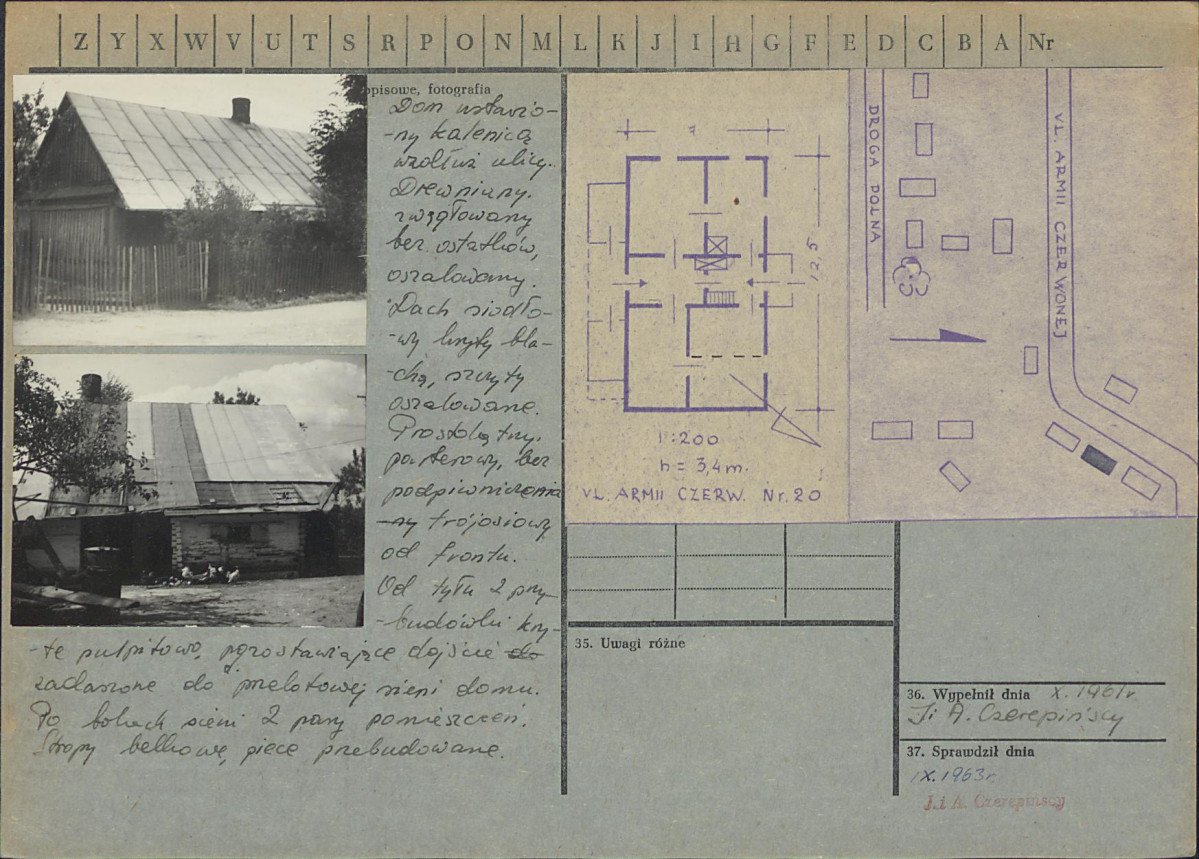 Z Y X W V U T S R P O N M L K J I H G F E D C B A Nr
opisowe, fotografia
Dom ustawio-
-ny kalenicą
wzdłuż ulicy.
Drewniany.
zwęgłowany
bez ostatków,
oszalowany.
Dach siodło-
-wy kryty bla-
-chą, szczyty
oszalowane.
Prostokątny.
parterowy, bez
podpiwniczenia
-ny trójosiowy
od frontu.
Od tyłu 2 przy-
-budówki kry-
-te pulpitowo, pozostawiające dojście do
zadaszone do przelotowej sieni domu.
Po bokach sieni 2 pary pomieszczeń.
Stropy belkowe, piece przebudowane.
12,5
1:200
h = 3,4 m.
UL. ARMII CZERW. Nr. 20
DROGA POLNA
UL. ARMII CZERWONEJ
35. Uwagi różne
36. Wypełnił dnia X. 1961r.
J i A. Czerepińscy
37. Sprawdził dnia
IX. 1963r.
J. i A. Czerepińscy